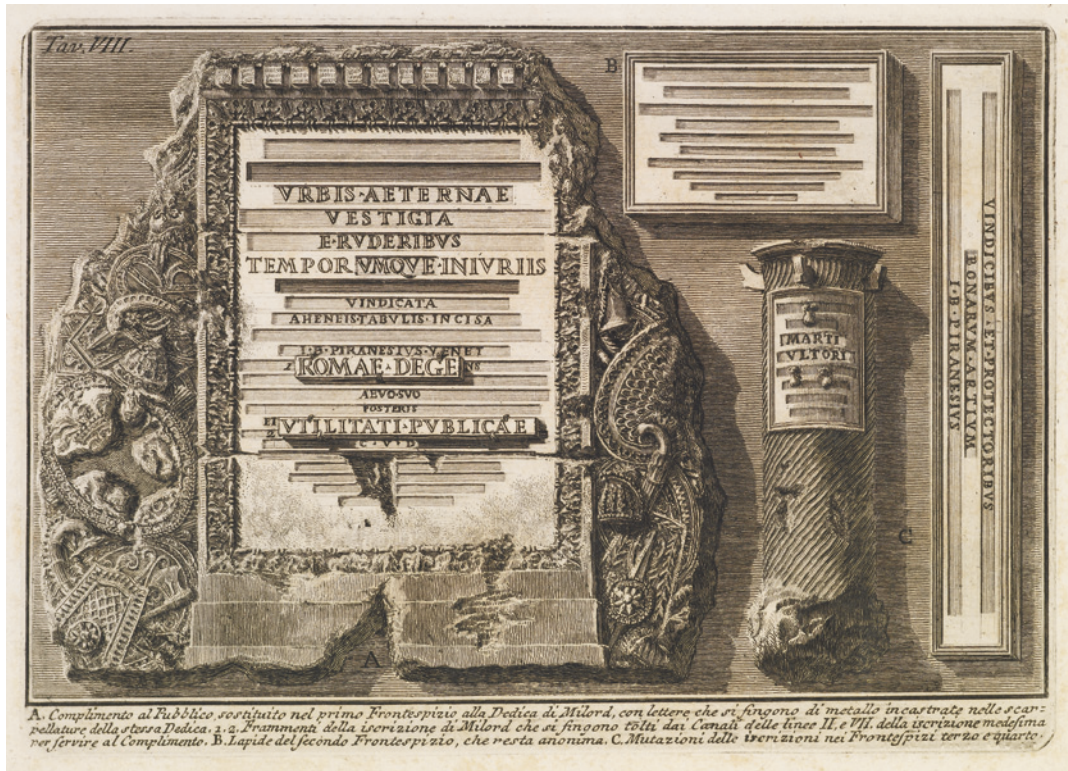 Tav. VIII.
VRBIS·AETERNAE
VESTIGIA
E·RVDERIBVS
TEMPORVMQVE·INIVRIIS
VINDICATA
AHENEIS·TABVLIS·INCISA
I·B·PIRANESIVS·VENET
ROMAE·DEGENS
AEVO·SVO
POSTERIS
ET
VTILITATI·PVBLICAE
C·V·D
A
B
MARTI
VLTORI
C
VINDICIBVS·ET·PROTECTORIBVS
BONARVM·ARTIVM
I·B·PIRANESIVS
A. Complimento al Pubblico, sostituito nel primo Frontespizio alla Dedica di Milord, con lettere, che si fingono di metallo incastrate nelle scar-
pellature della stessa Dedica. 1. 2. Frammenti della iscrizione di Milord che si fingono tolti dai Canali delle linee II. e VII. della iscrizione medesima
per servire al Complimento. B. Lapide del secondo Frontespizio, che resta anonima. C. Mutazioni delle iscrizioni nei Frontespizi terzo e quarto.